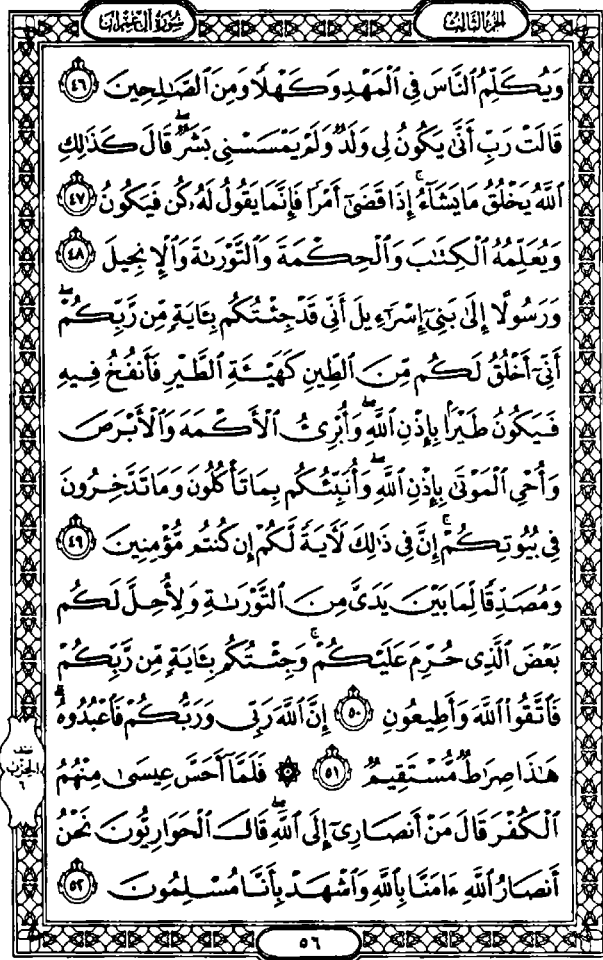 الجزء الثالث
سورة آل عمران
وَيُكَلِّمُ ٱلنَّاسَ فِي ٱلْمَهْدِ وَكَهْلًا وَمِنَ ٱلصَّـٰلِحِينَ ٤٦
قَالَتْ رَبِّ أَنَّىٰ يَكُونُ لِي وَلَدٌ وَلَمْ يَمْسَسْنِي بَشَرٌۖ قَالَ كَذَٰلِكِ
ٱللَّهُ يَخْلُقُ مَا يَشَآءُۚ إِذَا قَضَىٰٓ أَمْرًا فَإِنَّمَا يَقُولُ لَهُۥ كُن فَيَكُونُ ٤٧
وَيُعَلِّمُهُ ٱلْكِتَـٰبَ وَٱلْحِكْمَةَ وَٱلتَّوْرَىٰةَ وَٱلْإِنجِيلَ ٤٨
وَرَسُولًا إِلَىٰ بَنِيٓ إِسْرَٰٓءِيلَ أَنِّي قَدْ جِئْتُكُم بِـَٔايَةٍ مِّن رَّبِّكُمْۖ
أَنِّيٓ أَخْلُقُ لَكُم مِّنَ ٱلطِّينِ كَهَيْـَٔةِ ٱلطَّيْرِ فَأَنفُخُ فِيهِ
فَيَكُونُ طَيْرًۢا بِإِذْنِ ٱللَّهِۖ وَأُبْرِئُ ٱلْأَكْمَهَ وَٱلْأَبْرَصَ
وَأُحْيِ ٱلْمَوْتَىٰ بِإِذْنِ ٱللَّهِۖ وَأُنَبِّئُكُم بِمَا تَأْكُلُونَ وَمَا تَدَّخِرُونَ
فِي بُيُوتِكُمْۚ إِنَّ فِي ذَٰلِكَ لَـَٔايَةً لَّكُمْ إِن كُنتُم مُّؤْمِنِينَ ٤٩
وَمُصَدِّقًا لِّمَا بَيْنَ يَدَيَّ مِنَ ٱلتَّوْرَىٰةِ وَلِأُحِلَّ لَكُم
بَعْضَ ٱلَّذِي حُرِّمَ عَلَيْكُمْۚ وَجِئْتُكُم بِـَٔايَةٍ مِّن رَّبِّكُمْ
فَٱتَّقُوا۟ ٱللَّهَ وَأَطِيعُونِ ٥٠ إِنَّ ٱللَّهَ رَبِّي وَرَبُّكُمْ فَٱعْبُدُوهُۗ
هَـٰذَا صِرَٰطٌ مُّسْتَقِيمٌ ٥١ ۞ فَلَمَّآ أَحَسَّ عِيسَىٰ مِنْهُمُ
ٱلْكُفْرَ قَالَ مَنْ أَنصَارِيٓ إِلَى ٱللَّهِۖ قَالَ ٱلْحَوَارِيُّونَ نَحْنُ
أَنصَارُ ٱللَّهِ ءَامَنَّا بِٱللَّهِ وَٱشْهَدْ بِأَنَّا مُسْلِمُونَ ٥٢
نصف
الحزب
٦
٥٦